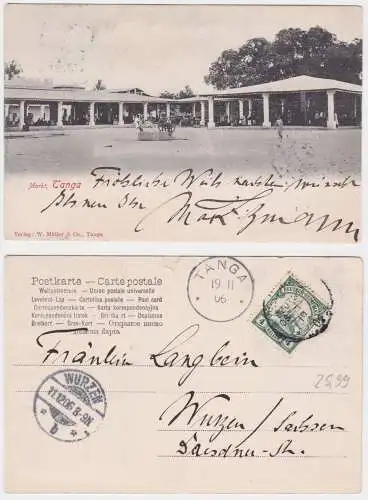 Markt, Tanga
Fröhliche Weihnachten wünscht
Ihnen Ihr
Verlag: W. Müller & Co., Tanga
Postkarte - Carte postale
Weltpostverein - Union postale universelle
Levelező-Lap - Cartolina postale - Post card
Correspondenzkarte - Karta korespondencyjna
Korespondenční lístek - Brefkort - Dopisnice
Brefkort - Brev-Kort - Открытое письмо
TANGA
19 11
06
Fräulein Langbein
WURZEN
11.12.06. 8-9N
b
25,99
Wurzen / Sachsen
Dresdner-Str.